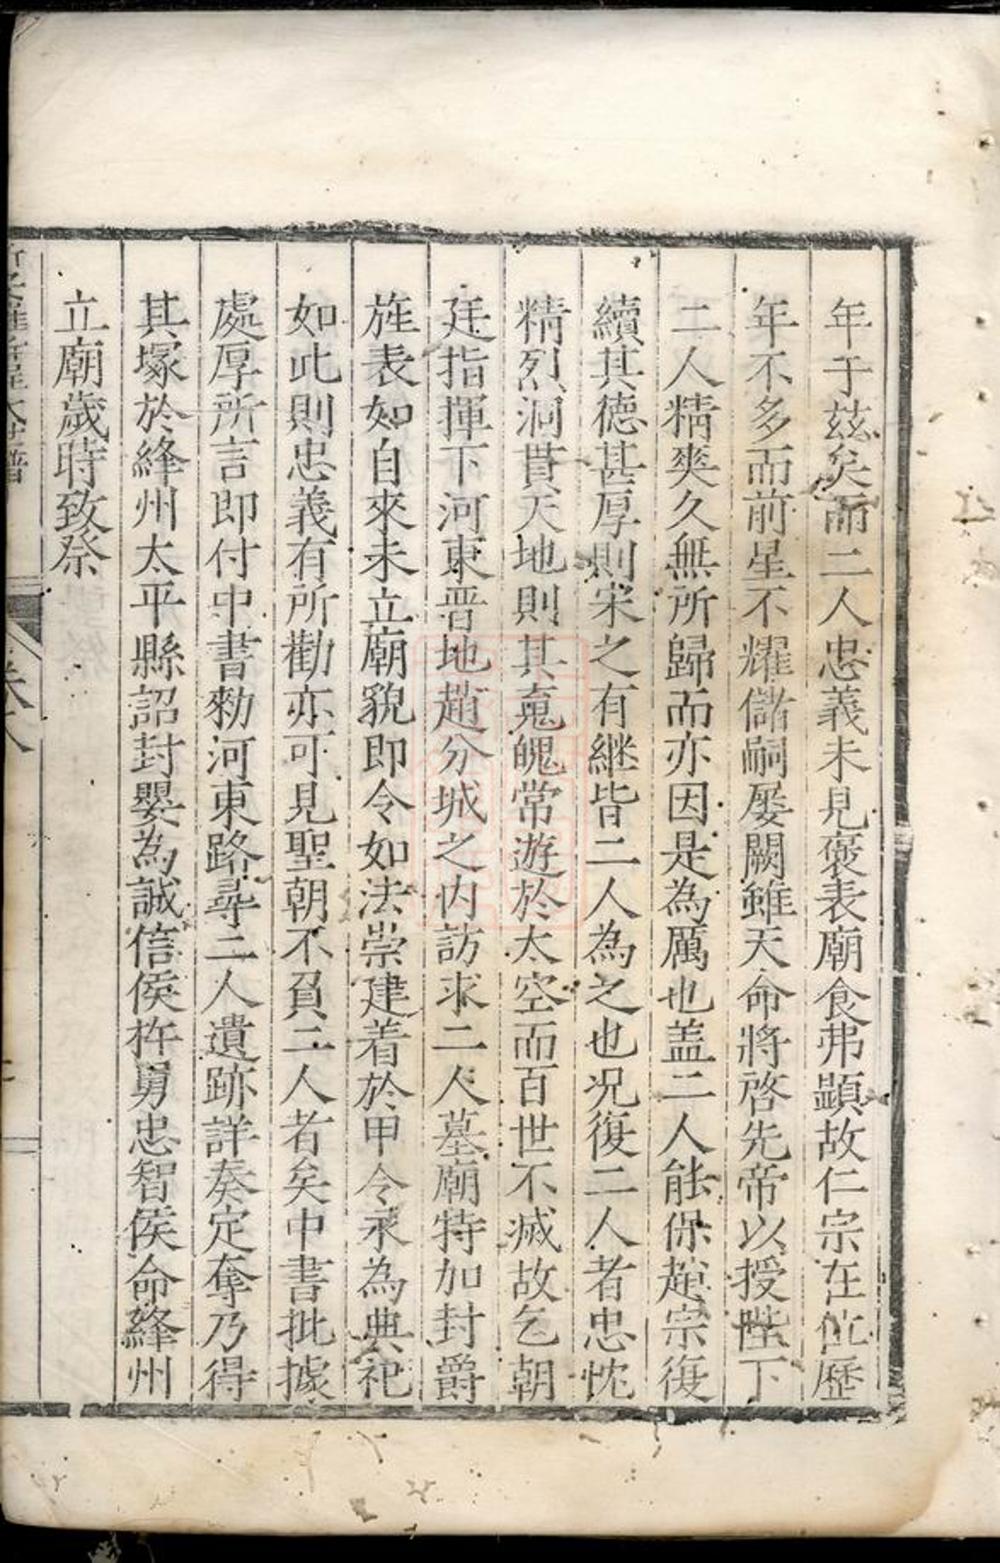 年于茲矣而二人忠義未見褒表廟食弗顯故仁宗在位歷
年不多而前星不耀儲嗣屢闕雖天命將啓先帝以授陛下
二人精爽久無所歸而亦因是為厲也蓋二人能保趙宗復
續其德甚厚則宋之有継皆二人為之也况復二人者忠忱
精烈洞貫天地則其䰟魄常遊於太空而百世不㓕故乞朝
廷指揮下河東晋地趙分城之内訪求二人墓廟特加封爵
旌表如自來未立廟貌即令如法崇建着於甲令永為典祀
如此則忠義有所勸亦可見聖朝不負二人者矣中書批據
處厚所言即付中書勑河東路尋二人遺跡詳奏定奪乃得
其塚於絳州太平縣詔封嬰為誠信侯杵臼忠智侯命絳州
立廟歲時致祭